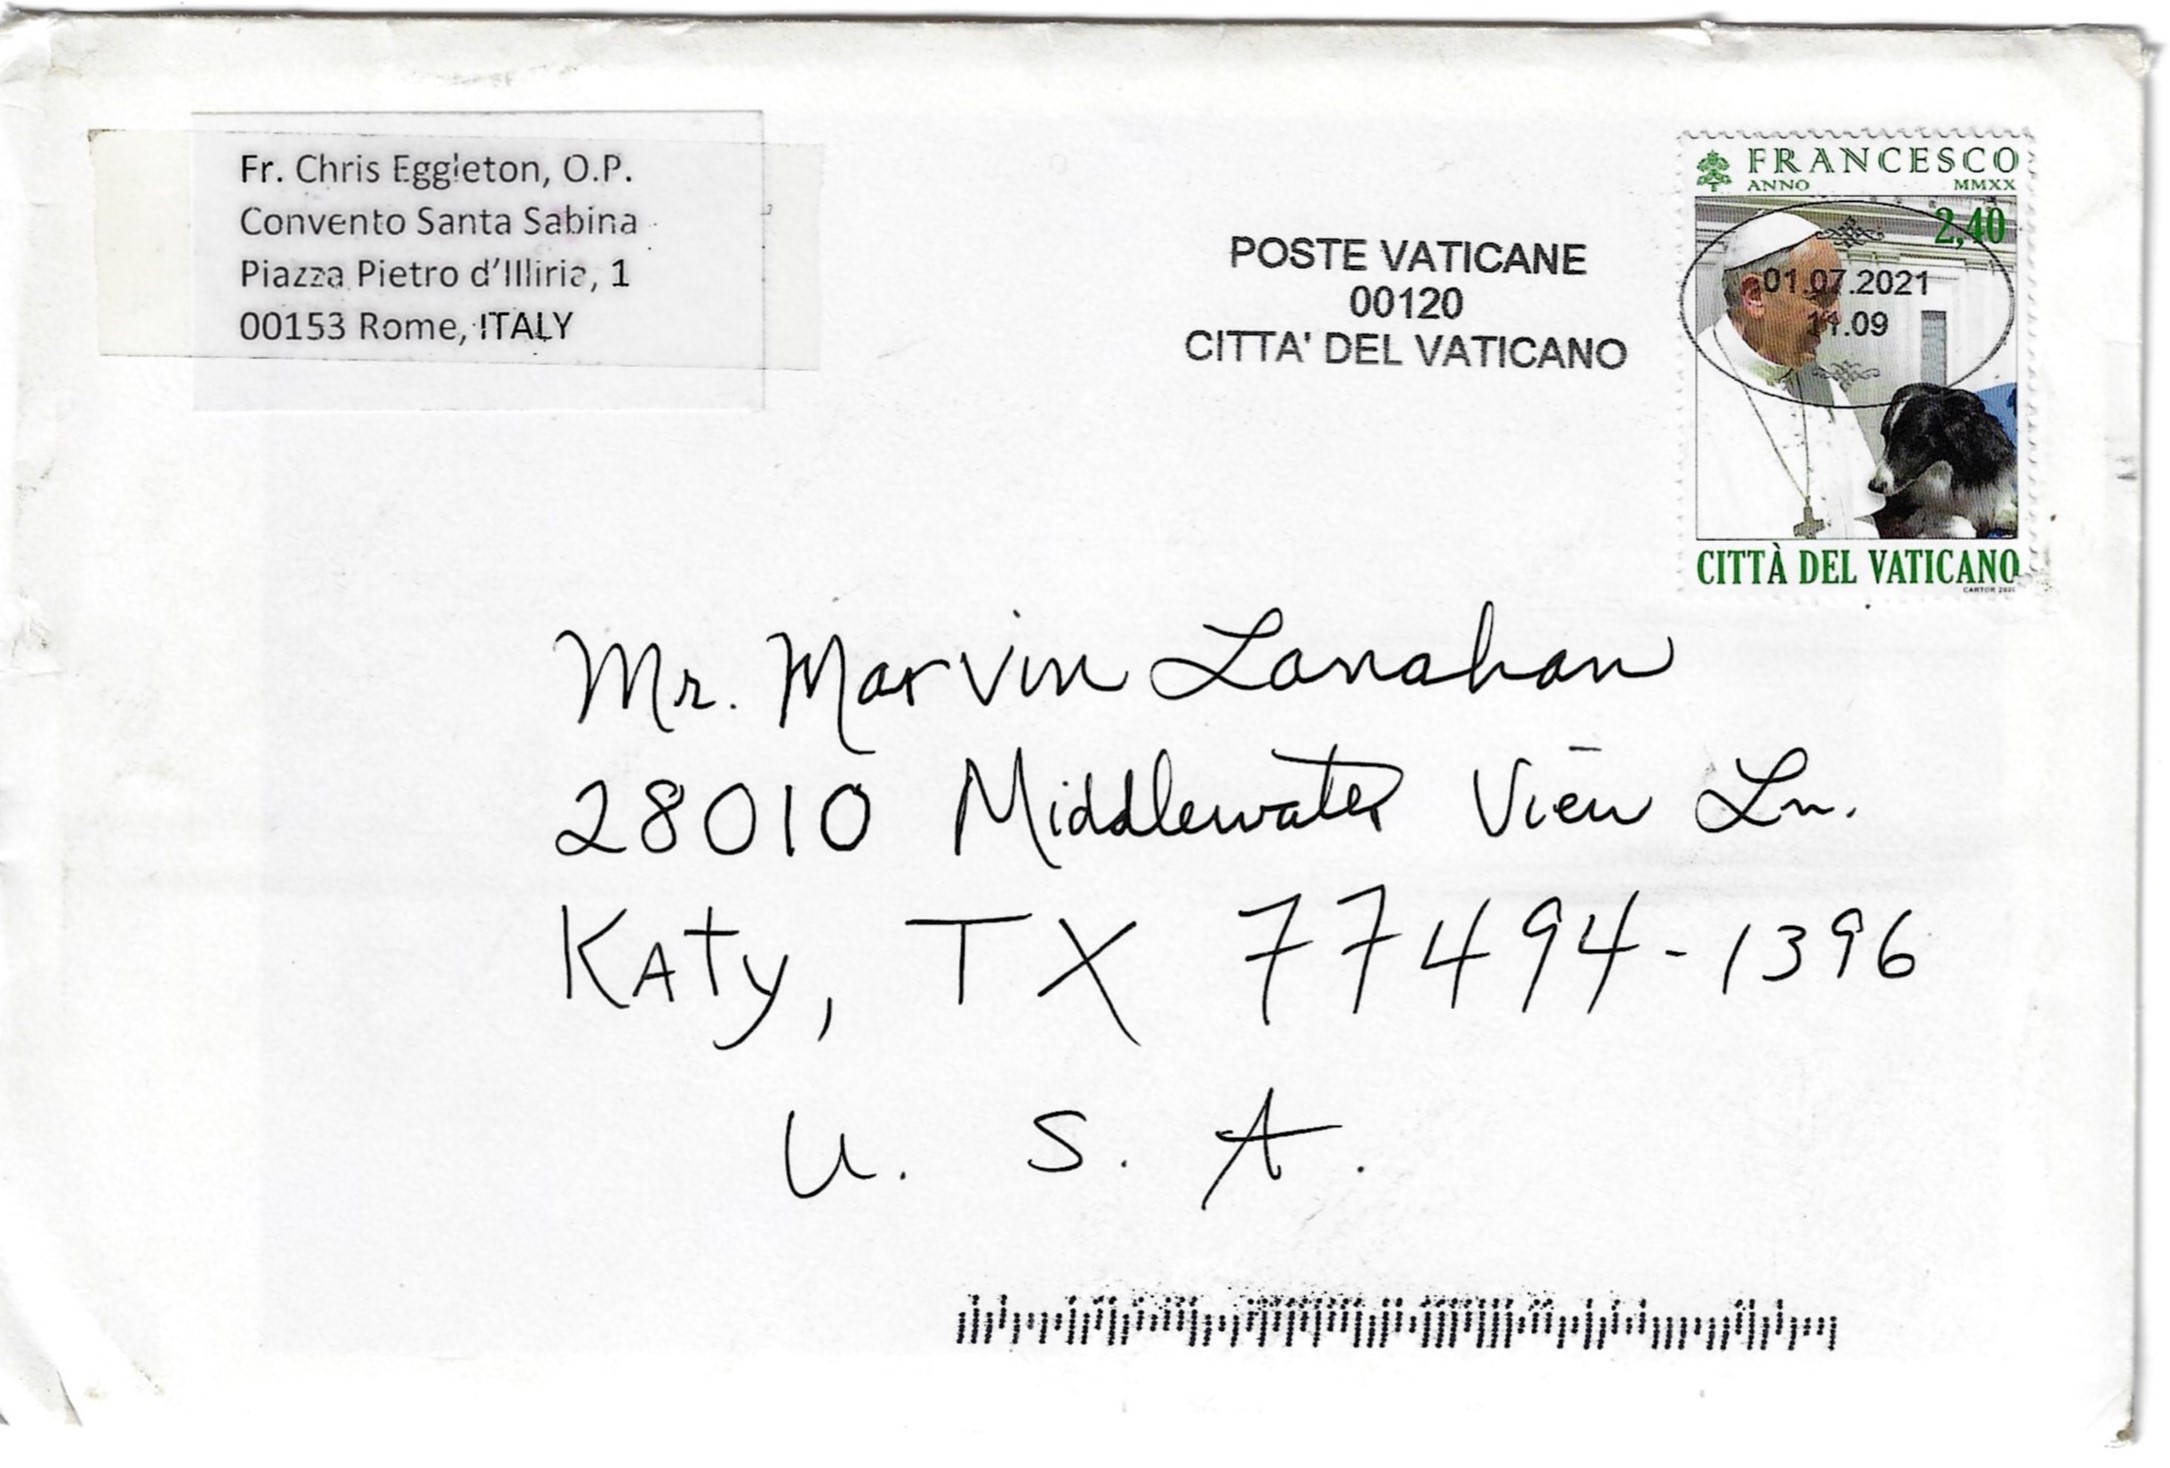 Fr. Chris Eggleton, O.P.
Convento Santa Sabina
Piazza Pietro d'Illiria, 1
00153 Rome, ITALY
POSTE VATICANE
00120
CITTA' DEL VATICANO
FRANCESCO
ANNO MMXX
2,40
01.07.2021
11.09
CITTÀ DEL VATICANO
CARTOR 2020
Mr. Marvin Lanahan
28010 Middlewater View Ln.
Katy, TX 77494-1396
U. S. A.